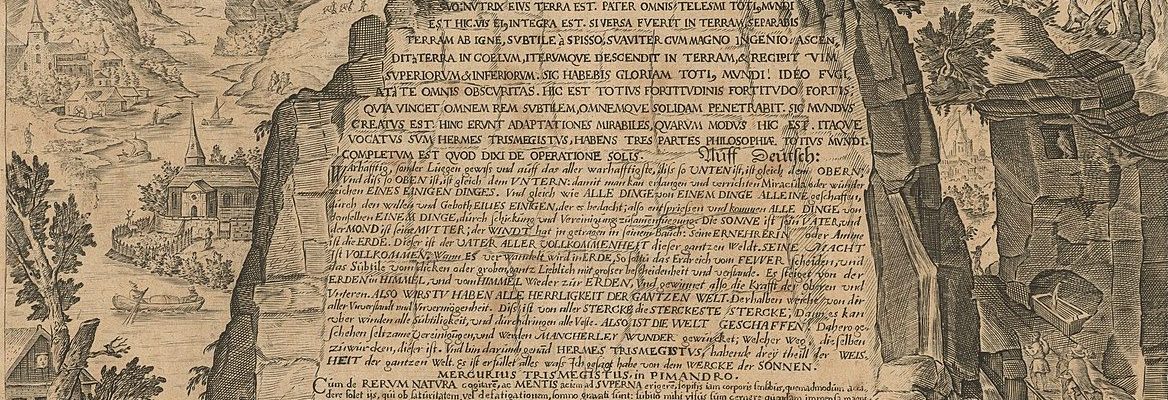 SVO. NVTRIX EIVS TERRA EST. PATER OMNIS TELESMI TOTI, MVNDI
EST HIC. VIS EI, INTEGRA EST. SI VERSA FVERIT IN TERRAM, SEPARABIS
TERRAM AB IGNE, SVBTILE à SPISSO, SVAVITER CVM MAGNO INGENIO. ASCEN,
DIT à TERRA IN COELVM, ITERVMQVE DESCENDIT IN TERRAM, & RECIPIT VIM
SVPERIORVM & INFERIORVM. SIC HABEBIS GLORIAM TOTI, MVNDI. IDEO FVGI,
AT à TE OMNIS OBSCVRITAS. HIC EST TOTIVS FORTITVDINIS FORTITVDO FORTIS,
QVIA VINCET OMNEM REM SVBTILEM, OMNEMQVE SOLIDAM PENETRABIT. SIC MVNDVS
CREATVS EST. HINC ERVNT ADAPTATIONES MIRABILES, QVARVM MODVS HIC EST. ITAQVE
VOCATVS SVM HERMES TRISMEGISTVS, HABENS TRES PARTES PHILOSOPHIÆ TOTIVS MVNDI.
COMPLETVM EST QVOD DIXI DE OPERATIONE SOLIS. Auff Deutsch:
Warhafftig, sonder Luegen gewiß vnd auff das aller warhafftigste, diß so VNTEN ist, ist gleich dem OBERN:
Vnd diß so OBEN ist, ist gleich dem VNTERN: damit man kan erlangen vnd verrichten Miracula oder wunder
zeichen EINES EINIGEN DINGES. Vnd gleich wie ALLE DINGE von EINEM DINGE ALLEINE geschaffen,
durch den willen vnd Geboth EINES EINIGEN, der es bedacht; also entsprießen vnd kommen ALLE DINGE von
demselben EINEM DINGE, durch schickung vnd Vereinigung zusamenfuegung. Die SONNE ist sein VATER, vnd
der MOND ist seine MVTTER; der WINDT hat in getragen in seinem Bauch: Seine ERNEHRERIN oder Amme
ist die ERDE. Dieser ist der VATER ALLER VOLLKOMMENHEIT dieser gantzen Weldt. SEINE MACHT
ist VOLLKOMMEN, Wann ES verwandelt wird in ERDE, So soltu das Erdreich vom FEWER scheiden, vnd
das Subtile vom dicken oder groben, gantz Lieblich mit großer bescheidenheit vnd verstande. Es steiget von der
ERDEN in HIMMEL, vnd vom HIMMEL Wieder zur ERDEN, Vnd gewinnet also die Krafft der Obern vnd
Vnteren. ALSO WIRSTV HABEN ALLE HERRLIGKEIT DER GANTZEN WELT. Derhalben weiche von dir
aller Vnverstandt vnd Vnvermögenheit. Diß ist von aller STERCKE die STERCKESTE STERCKE, Dann es kan
vber winden alle Subtiligkeit, vnd durchdringen alle Veste. ALSO IST DIE WELT GESCHAFFEN. Dahero ge,
schehen seltzame Vereinigungen, vnd Werden MANCHERLEY WVNDER gewürcket; Welcher Weg, dieselben
zu würcken, dieser ist. Vnd bin darumb genand HERMES TRISMEGISTVS, habende drey theill der WEIS,
HEIT der gantzen Welt. Es ist erfüllet alles waß Ich gesagt habe von dem WERCKE der SONNEN.
MERCVRIVS TRISMEGISTVS, in PIMANDRO.
Cùm de RERVM NATVRA cogitarem, ac MENTIS aciem ad SVPERNA erigerem, sopitis iam corporis sensibus, quemadmodum acci,
dere solet iis, qui ob saturitatem vel defatigationem, somno gravati sunt: subitò mihi visus sum cernere quendam immensa magni